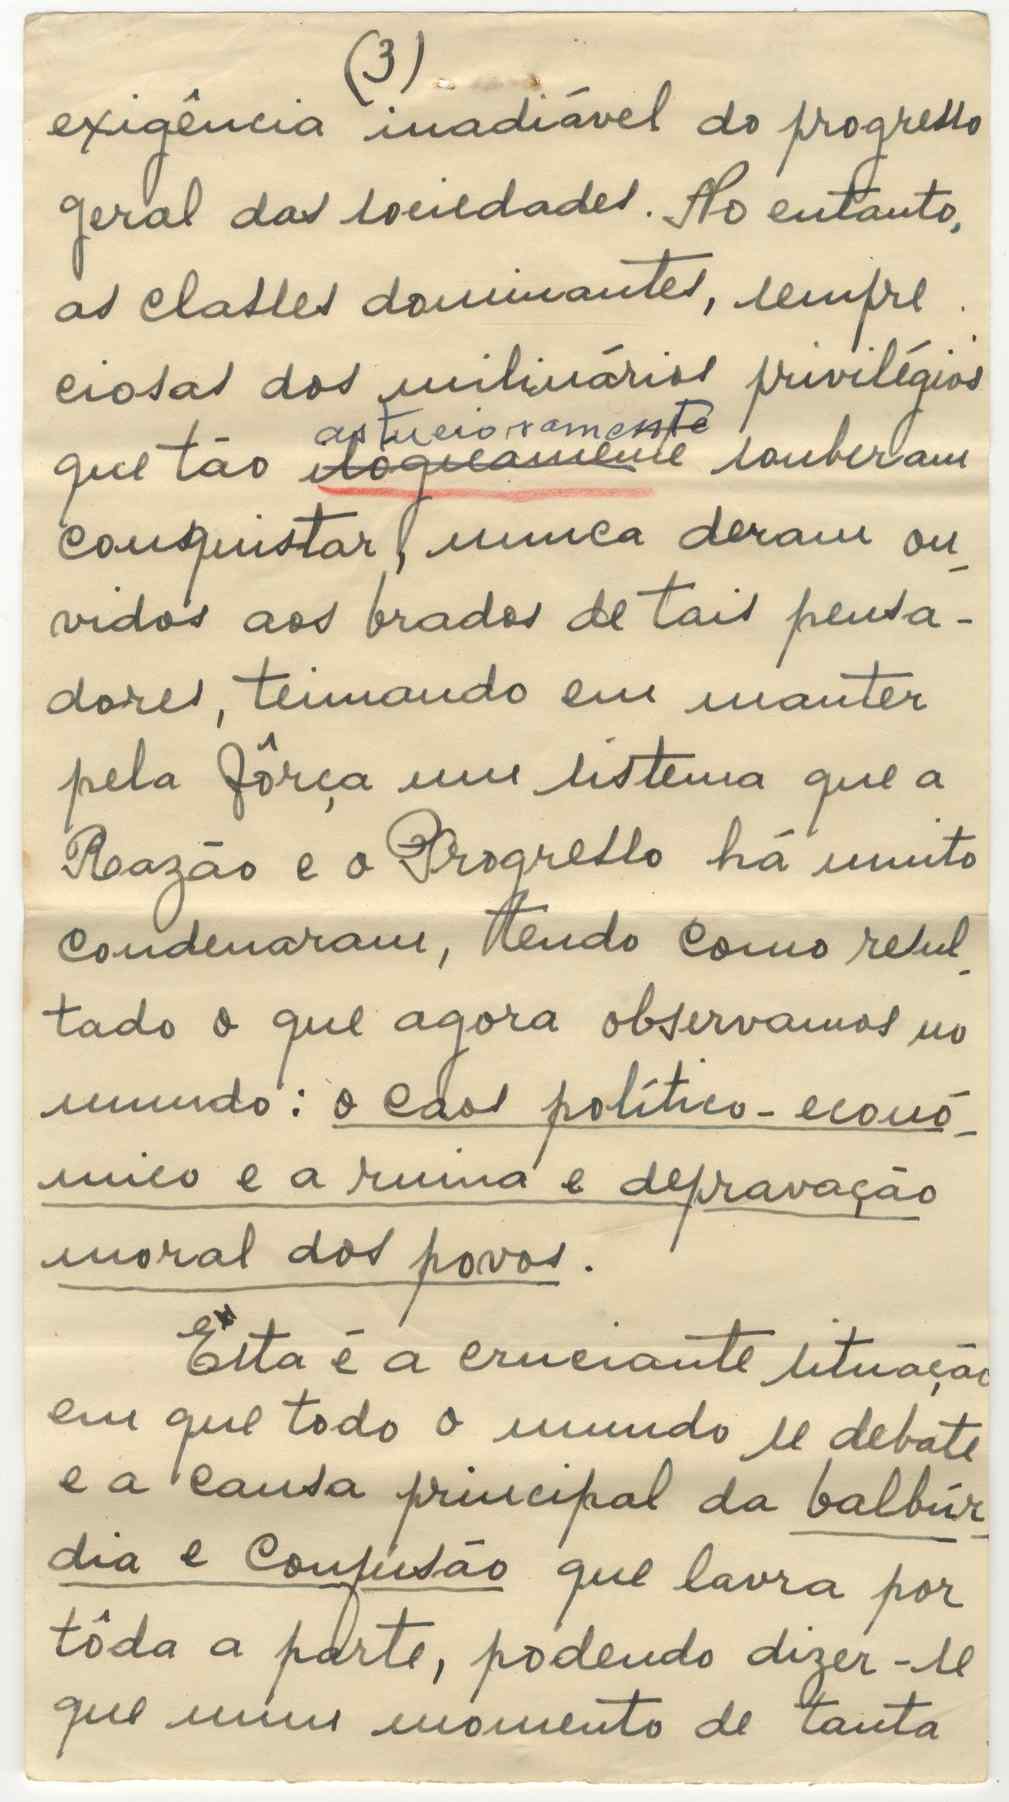 (3)
exigência inadiável do progresso
geral das sociedades. No entanto,
as classes dominantes, sempre
ciosas dos milinários privilégios
astuciosamente
que tão ilogicamente souberam
conquistar, nunca deram ou-
vidos aos brados de tais pensa-
dores, teimando em manter
pela fôrça um sistema que a
Razão e o Progresso há muito
condenaram, tendo como resul-
tado o que agora observamos no
mundo: o caos político-econó-
mico e a ruina e depravação
moral dos povos.
Esta é a cruciante situação
em que todo o mundo se debate
e a causa principal da balbúr-
dia e confusão que lavra por
tôda a parte, podendo dizer-se
que num momento de tanta